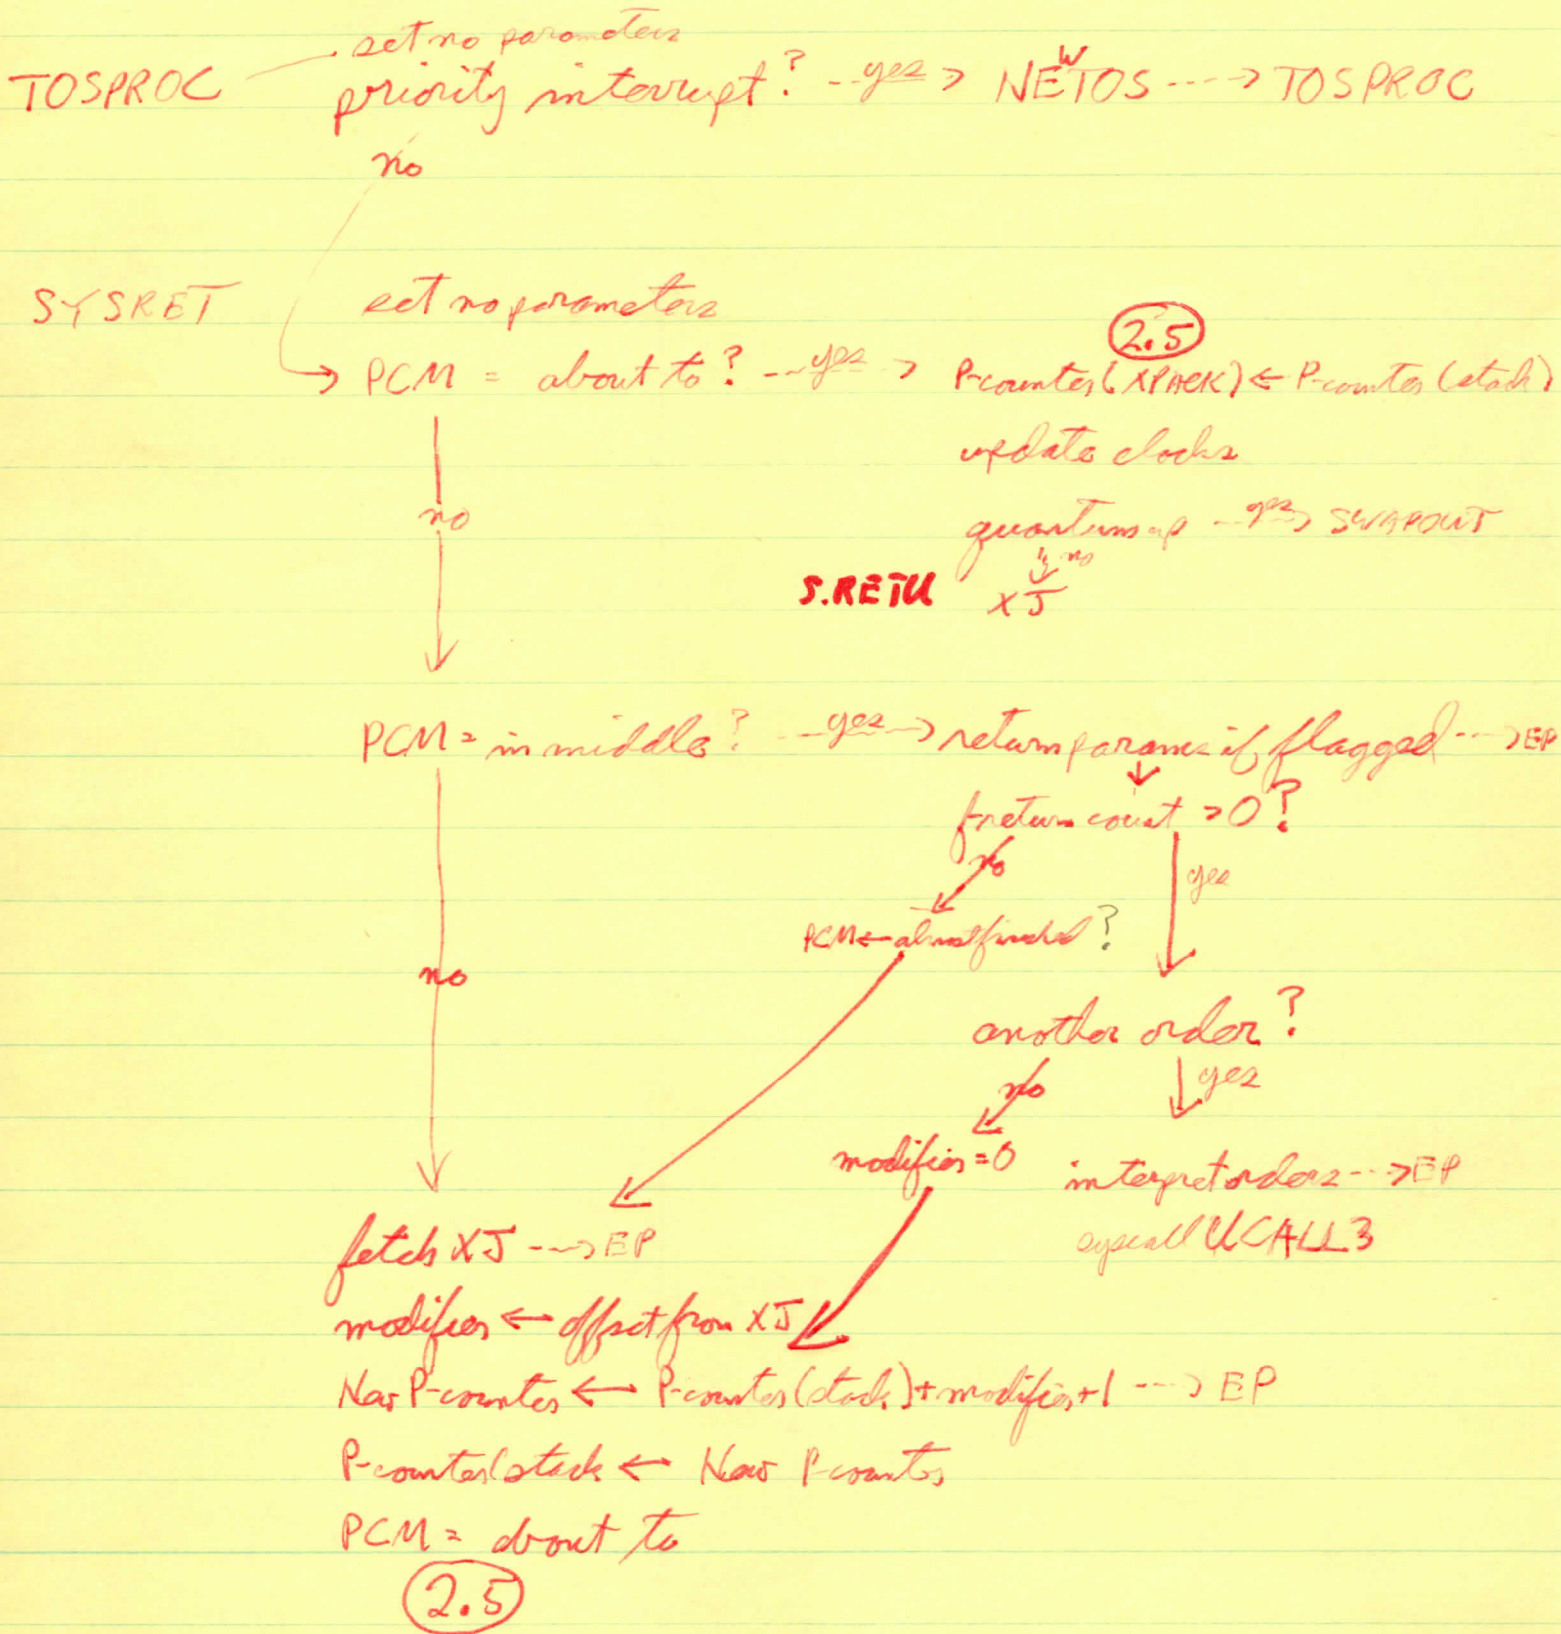 set no parameters
TOSPROC priority interrupt? --yes--> NEWTOS ----> TOSPROC
no
SYSRET set no parameters
2.5
PCM = about to? --yes--> P-counter(XPACK) ← P-counter(stack)
update clocks
no
quantum up --yes--> SWAPOUT
no
S.RETU XJ
PCM = in middle? --yes--> return params if flagged ---> EP
f-return count > 0?
no yes
PCM ← almost finished?
no
another order?
no yes
modifier = 0 interpret orders ---> EP
syscall UCALL3
fetch XJ ---> EP
modifier ← offset from XJ
New P-counter ← P-counter(stack)+modifier+1 ---> EP
P-counter(stack ← New P-counter
PCM = about to
2.5